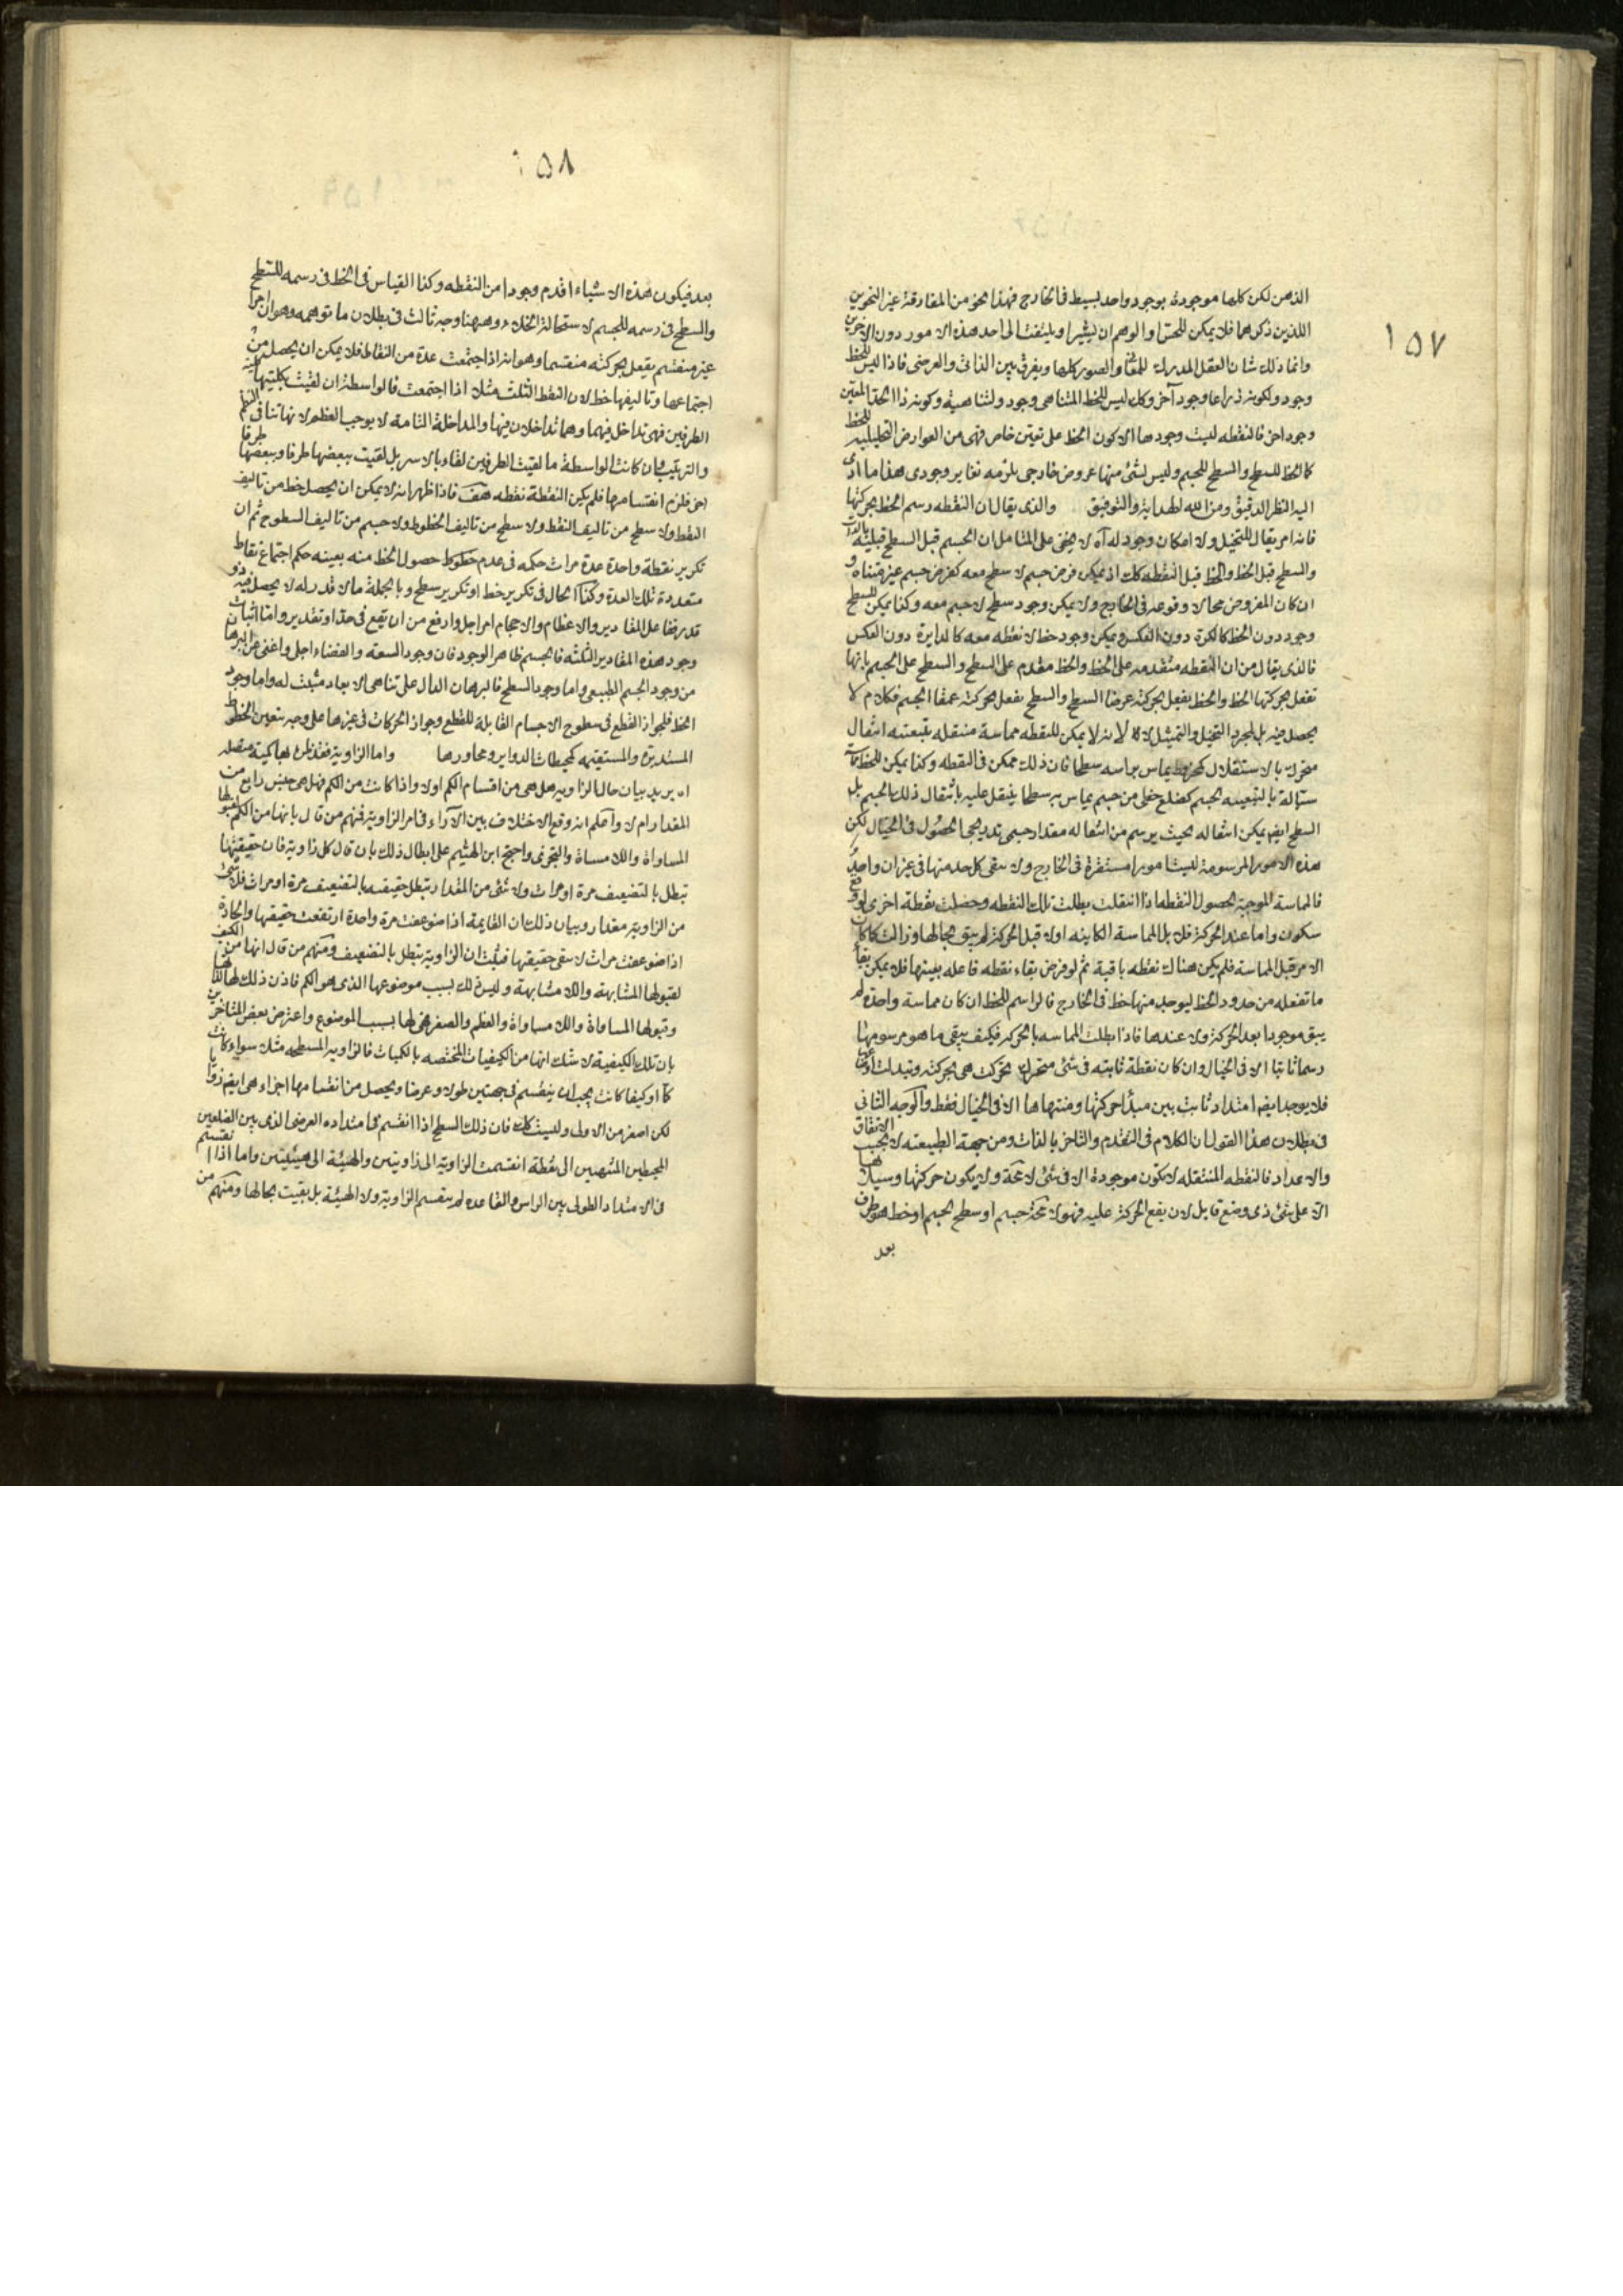 ١٥٧
الذهن لكن كلها موجودة بوجود واحد بسيط فى الخارج فهذا نحو من المفارقة غير النحوين
اللذين ذكرهما فلا يمكن للحس او الوهم ان يشير او يلتفت الى احد هذه الامور دون الاخرين
وانما ذلك شان العقل المدرك للمعانى والصور كلها ويفرق بين الذاتى والعرضى فاذا ليس للخط
وجود ولكونه ذراعا وجود آخر وكك ليس للخط المتناهى وجود ولتناهيه وكونه ذا الحد المعين
وجود اخر فالنقطه ليست وجودها الا كون الخط على تعين خاص فهى من العوارض التحليليه للخط
كالخط للسطح والسطح للجسم وليس لشئ منها عروض خارجى يلزمه تغاير وجودى هذا ما ادى
اليه النظر الدقيق ومن الله الهداية والتوفيق والذى يقال ان النقطه رسم الخط بحركتها
فانه امر يقال للتخيل ولا امكان وجود له آه لا يخفى على المتامل ان الجسم قبل السطح قبلية بالذات
والسطح قبل الخط والخط قبل النقطه كك اذ يمكن فرض جسم لا سطح معه كفرض جسم غير متناه و
ان كان المفروض محالا وقوعه فى الخارج ولا يمكن وجود سطح لا جسم معه وكذا يمكن للسطح
وجود دون الخط كالكرة دون العكس ويمكن وجود خط لا نقطه معه كالدايرة دون العكس
فالذى يقال من ان النقطه متقدمه على الخط والخط مقدم على السطح والسطح على الجسم بانها
تفعل بحركتها الخط والخط يفعل بحركته عرضا السطح والسطح يفعل بحركته عمقا الجسم فكلام لا
يحصل فيه بل لمجرد التخيل والتمثيل لانه لا يمكن للنقطه مماسة منتقله بتبعيته انتقال
متحرك بالاستقلال كمخروط يماس براسه سطحا فان ذلك ممكن فى النقطه وكذا يمكن للخط مماسة
سيالة بالتبعيه لجسم كضلع خطى من جسم يماس به سطحا ينتقل عليه بانتقال ذلك الجسم بل
السطح ايضا يمكن انتقاله بحيث يرسم من انتقاله مقدار جسمى تدريجى الحصول فى الخيال لكن
هذه الامور المرسومة ليست امورا مستقرة فى الخارج ولا يبقى كل حد منها فى غير ان واحد
فالمماسة الموجبة لحصول النقطه اذا انتقلت بطلت تلك النقطه وحصلت نقطة اخرى لو وقع
سكون واما عند الحركة فلا بل المماسة الكاينه اولا قبل الحركة لم يبق بحالها وزالت كما كان
الامر قبل المماسة فلم يكن هناك نقطه باقية ثم لو فرض بقاء نقطه فاعله بعينها فلا يمكن بقاء
ما تفعله من حدود الخط ليوجد منها خط فى الخارج فالراسم للخط ان كان مماسة واحدة لم
يبق موجودا بعد الحركة ولا عندها فاذا بطلت المماسه بالحركه فكيف يبقى ما هو مرسومها
رسما ثابتا الا فى الخيال وان كان نقطة ثابته فى شئ متحرك تحركت هى بحركته وتبدلت
فلا يوجد ايضا امتداد ثابت بين مبدأ حركتها ومنتهاها الا فى الخيال فقط والوجه الثانى
فى بطلان هذا القول ان الكلام فى التقدم والتاخر بالذات ومن جهة الطبيعه لا بحسب الاتفاق
والاعداد فالنقطه المنتقله لا تكون موجودة الا فى شئ لا محة ولا يكون حركتها وسيلانها
الا على شئ ذى وضع قابل لان يقع الحركة عليه فهو لا محة جسم او سطح الجسم او خط هو طرف
بعد
١٥٨
بعد فيكون هذه الاشياء اقدم وجودا من النقطه وكذا القياس فى الخط فى رسمه للسطح
والسطح فى رسمه للجسم لاستحالة الخلاء وههنا وجه ثالث فى بطلان ما توهمه وهو ان اجزا
غير منقسم يفعل بحركته منقسما وهو انه اذا اجتمعت عدة من النقاط فلا يمكن ان يحصل من
اجتماعها وتاليفها خط لان النقط الثلث مثلا اذا اجتمعت فالواسطة ان لقيت بكليتها كلية
الطرفين فهى تداخل فيهما وهما تداخلان فيها والمداخلة التامة لا يوجب العظم لانها تنافى النظم
والترتيب وان كانت الواسطة ما لقيت الطرفين لقاء بالاسر بل لقيت ببعضها طرفا وببعضها طرفا
اخر فلزم انقسامها فلم يكن النقطة نقطه هف فاذا ظهر انه لا يمكن ان يحصل خط من تاليف
النقط ولا سطح من تاليف النقط ولا سطح من تاليف الخطوط ولا جسم من تاليف السطوح ثم ان
تكرير نقطة واحدة عدة مرات حكمه فى عدم خطوط حصول الخط منه بعينه حكم اجتماع نقاط
متعددة تلك العدة وكذا الحال فى تكرير خط او تكرير سطح وبالجملة ما لا قدر له لا يحصل منه ذو
قدر فقا على المقادير والاعظام والاحجام امر اجل وارفع من ان يقع فى حد او تقدير واما اثبات
وجود هذه المقادير الثلثه فالجسم ظاهر الوجود فان وجود السعة والفضاء اجل واغنى عن البرهان
من وجود الجسم الطبيعى واما وجود السطح فالبرهان الدال على تناهى الابعاد مثبت له واما وجود
الخط فلجواز القطع فى سطوح الاجسام القابلة للقطع وجواز الحركات فى غيرها على وجه يتعين الخطوط
المستديرة والمستقيمه كمحيطات الدواير ومحاورها واما الزاوية فقد ظن انها كمية متصله
اه يريد بيان حال الزاويه هل هى من اقسام الكم اولا واذا كانت من الكم فهل هى جنس رابع من
المقدار ام لا واعلم انه وقع الاختلاف بين الآراء فى امر الزاوية فمنهم من قال بانها من الكم لقبولها
المساواة واللا مساواة والتجزى واحتج ابن الهيثم على ابطال ذلك بان قال كل زاوية فان حقيقتها
تبطل بالتضعيف مرة او مرات ولا شئ من المقدار يبطل حقيقته بالتضعيف مرة او مرات فلا شئ
من الزاوية مقدار وبيان ذلك ان القايمة اذا ضوعفت مرة واحدة ارتفعت حقيقتها والحادة
اذا ضوعفت مرات لا يبقى حقيقتها فثبت ان الزاوية تبطل بالتضعيف ومنهم من قال انها من الكيف
لقبولها المشابهة واللا مشابهة وليس ذلك بسبب موضوعها الذى هو الكم فاذن ذلك لها لذاتها
وقبولها المساواة واللا مساواة والعظم والصغر فهى لها بسبب الموضوع واعترض بعض المتاخرين
بان تلك الكيفية لا شك انها من الكيفيات المختصه بالكميات فالزاويه المسطحه مثلا سواء كانت
كما او كيفا كانت يجب ان ينقسم فى جهتين طولا وعرضا ويحصل من انقسامها اجزاء هى ايضا زوايا
لكن اصغر من الاولى وليست كك فان ذلك السطح اذا انقسم فى امتداده العرضى الذى بين الضلعين
المحيطين المنتهيين الى نقطة انقسمت الزاوية الى زاويتين والهيئة الى هيئتين واما اذا انقسم
فى الامتداد الطولى بين الراس والقاعدة لم ينقسم الزاوية ولا الهيئة بل بقيت بحالها ومنهم من